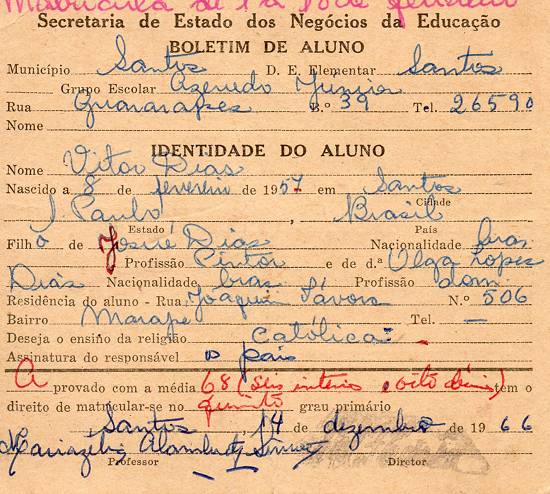 Matricula de 1 a 10 de fevereiro
Secretaria de Estado dos Negócios da Educação
BOLETIM DE ALUNO
Município Santos D. E. Elementar Santos
Grupo Escolar Azevedo Junior
Rua Guararapes B.º 39 Tel. 26590
Nome
IDENTIDADE DO ALUNO
Nome Vitor Dias
Nascido a 8 de fevereiro de 1957 em Santos
Cidade
S. Paulo, Brasil
Estado País
Filho de Josué Dias Nacionalidade bras
Profissão Pintor e de d.ª Olga Lopes
Dias Nacionalidade bras Profissão dom
Residência do aluno - Rua Joaquim Távora N.º 506
Bairro Marapé Tel. —
Deseja o ensino da religião Católica
Assinatura do responsável os pais
Aprovado com a média 68 (seis inteiros e oito décimos) tem o
direito de matricular-se no quinto grau primário
Santos, 14 de dezembro de 1966
Professor Diretor